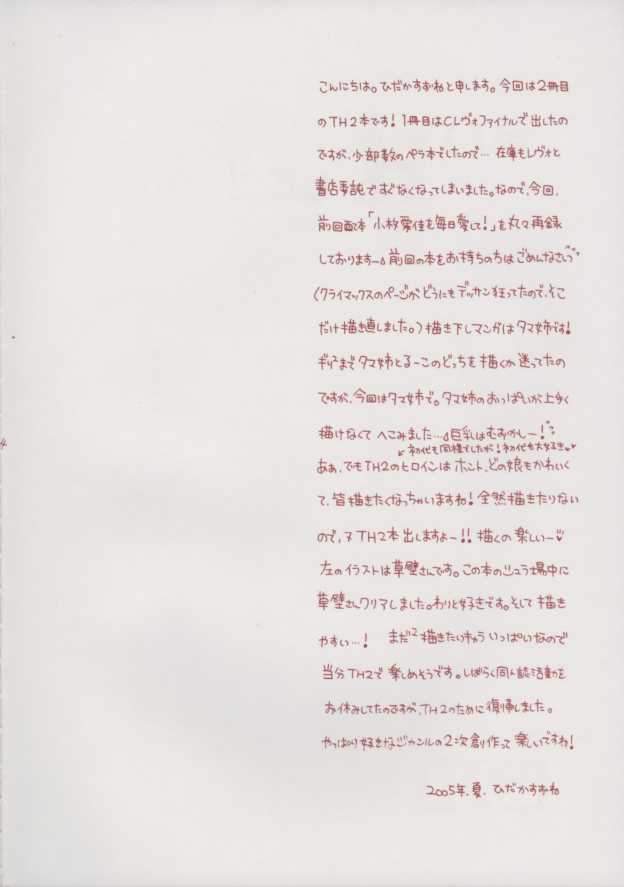 こんにちは。ひだかすずねと申します。今回は2冊目
のTH2本です！1冊目はCLヴォファイナルで出したの
ですが、少部数のペラ本でしたので… 在庫もレヴォと
書店委託ですぐなくなってしまいました。なので、今回、
前回本「小牧愛佳を毎日愛して！」を丸々再録
しております~ 前回の本をお持ちの方はごめんなさい
(クライマックスのページがどうにもデッサン狂ってたので、そこ
だけ描き直しました。)描き下しマンガはタマ姉です！
ギリ²までタマ姉とるーこのどっちを描くか迷ってたの
ですが、今回はタマ姉で。タマ姉のおっぱいが上手く
描けなくてへこみました…巨乳はむずかしー！
初代も同様でしたが！初代も大好き♥
あぁ、でもTH2のヒロインはホント、どの娘もかわいく
て、皆描きたくなっちゃいますね！全然描きたりない
ので、TH2本出しますよー!! 描くの楽しいー♥
左のイラストは草壁さんです。この本のシュラ場中に
草壁さんクリアしました。わりと好きです。そして描き
やすい…！ まだ²描きたいキャラいっぱいなので
当分TH2で楽しめそうです。しばらく同人誌活動を
お休みしてたのですが、TH2のために復帰しました。
やっぱり好きなジャンルの2次創作って楽しいですね！
2005年.夏. ひだかすずね